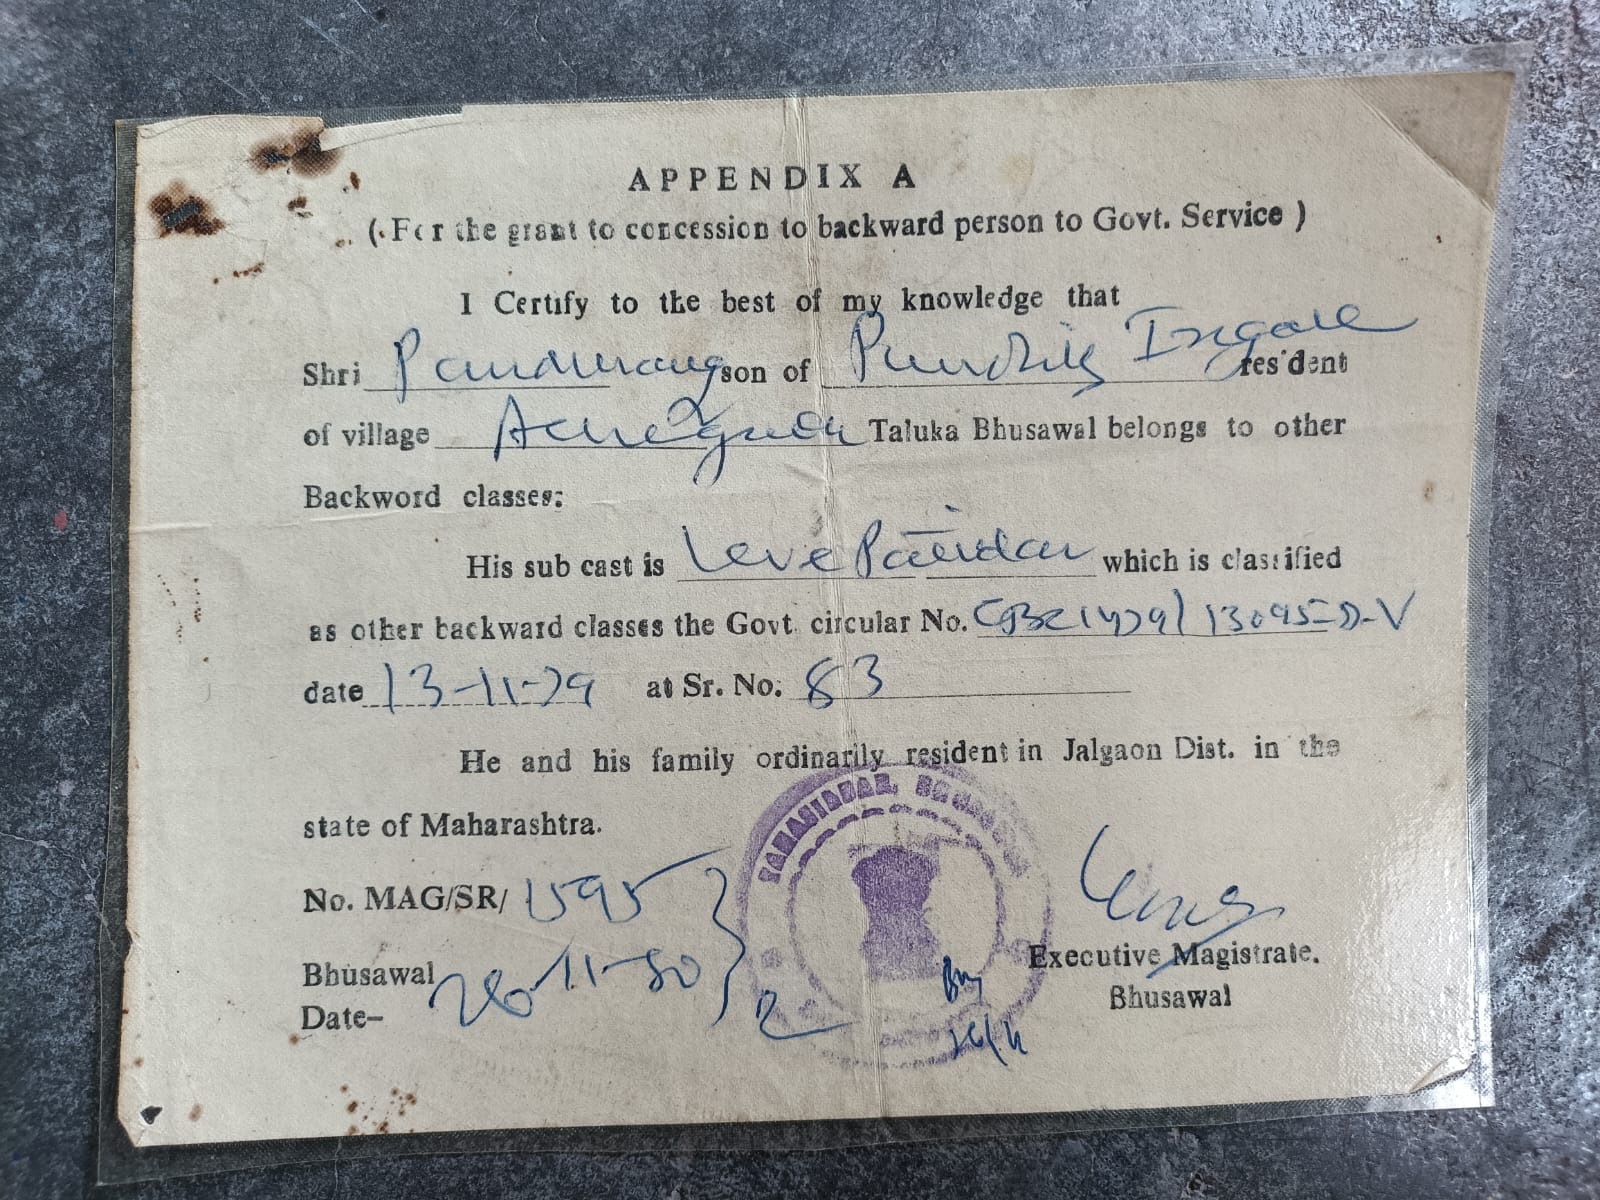 APPENDIX A
(For the grant to concession to backward person to Govt. Service)
I Certify to the best of my knowledge that
Shri Pandurang son of Pundlik Ingale resident
of village Taluka Bhusawal belongs to other
Backword classes:
His sub cast is Leve Patidar which is classified
as other backward classes the Govt. circular No. 13095-D-V
date 13-11-79 at Sr. No. 83
He and his family ordinarily resident in Jalgaon Dist. in the
state of Maharashtra.
No. MAG/SR/ 1595
Bhusawal
Date- 26-11-80
Executive Magistrate.
Bhusawal
26/11